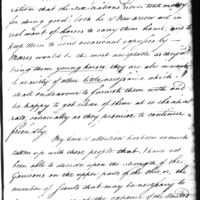 ration that the Six Nations Never took money
for being good; both the S Nans are now in
real want of horses to carry them home, and to
keep them to send occasional expresses
Mares would be the most acceptable as they
bring them young horses, they are also in want
of a variety of other little necessaries which I
shall endeavour to furnish them with and
be happy to get clear of them at so cheap a
rate, especially as they promise to continue
friendly.
My time & attention has been so much
taken up with these people that I have not
been able to decide upon the strength of the
Garrisons on the upper parts of the Ohio, the
number of Scouts that may be necessary to
at the expence of the United